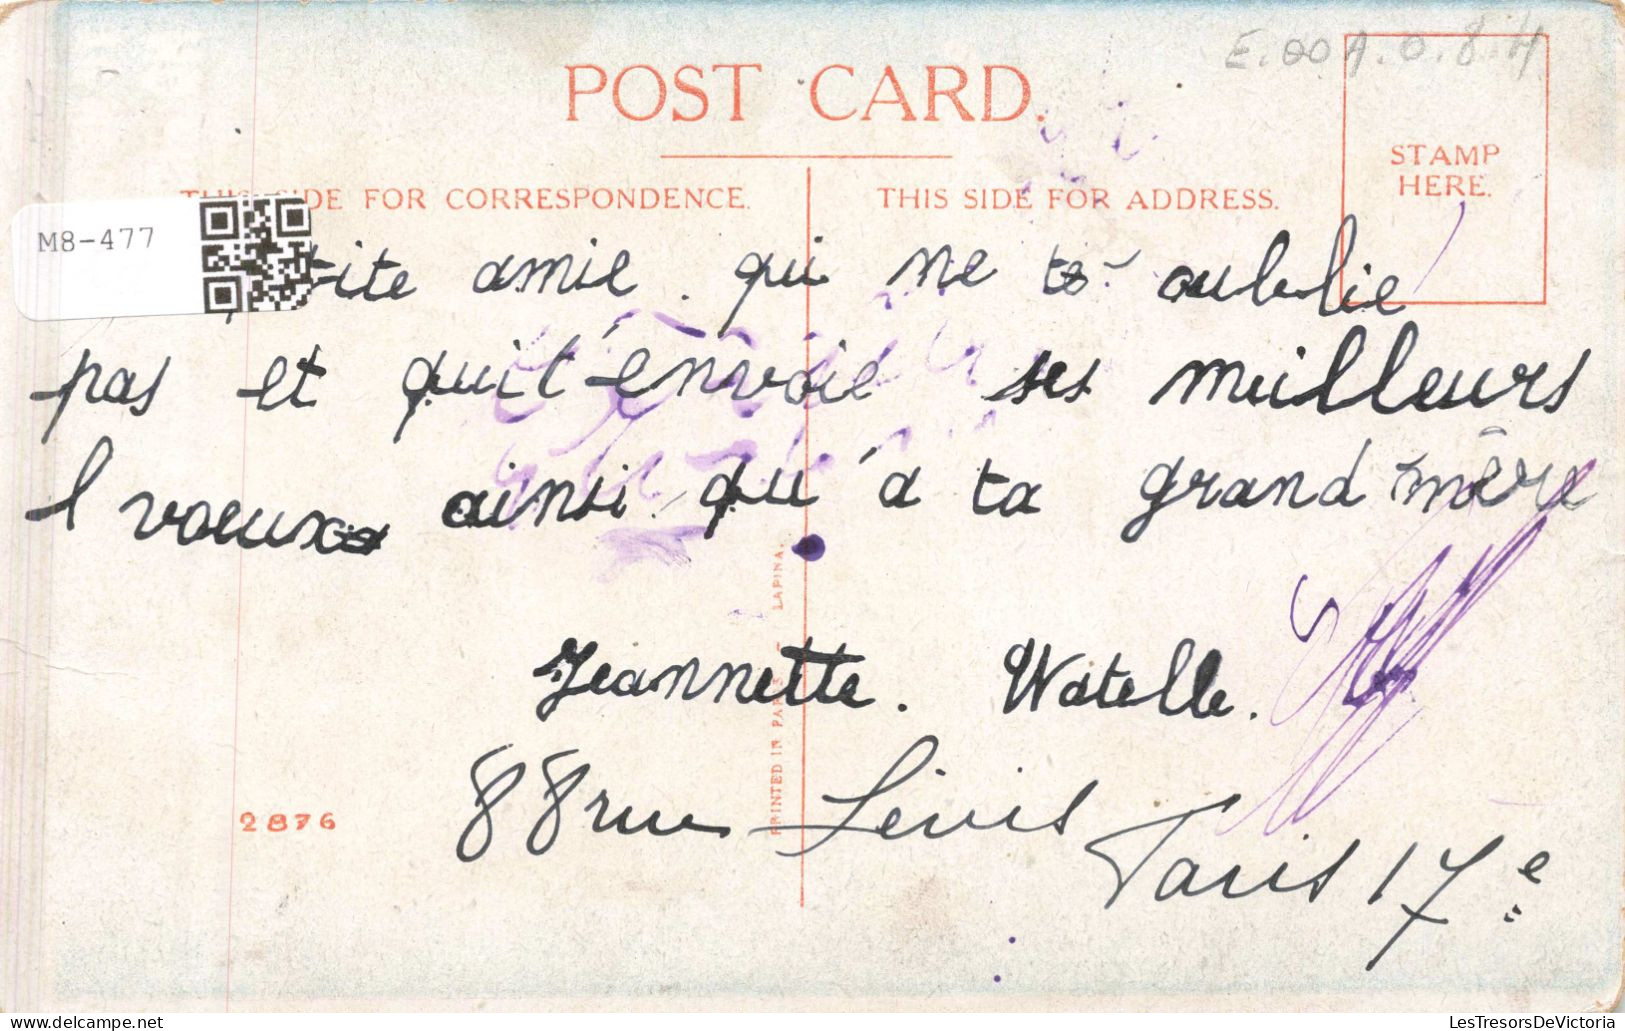 E.00A.0.8.H
POST CARD.
STAMP
HERE.
SIDE FOR CORRESPONDENCE.
THIS SIDE FOR ADDRESS.
M8-477
amie. qui ne t' oublie
pas et qui t'envoie ses meilleurs
voeux ainsi qu'à ta grand mère
Jeannette. Watelle.
88 rue Lévis
Paris 17e
2876
PRINTED IN PARIS - LAPINA.
LesTresorsDeVictoria
delcampe.net